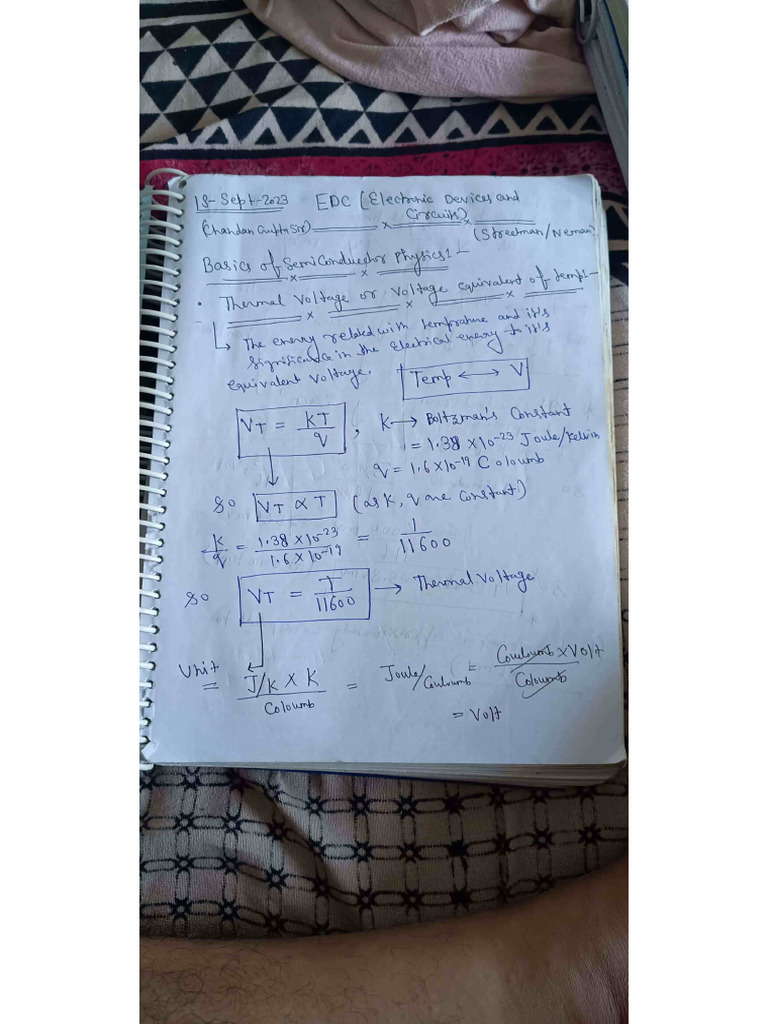 18-Sept-2023 EDC (Electronic Devices and Circuits)
(Chandan Gupta Sir) (Streetman/Neman)
Basics of SemiConductor Physics:-
• Thermal Voltage or Voltage equivalent of temp:-
↳ The energy related with temprature and it's
significance in the electrical energy to it's
equivalent Voltage. Temp ↔ V
VT = KT/q , K → Boltzman's Constant
= 1.38 × 10^-23 Joule/Kelvin
q = 1.6 × 10^-19 Coloumb
so VT ∝ T (as K, q are constant)
K/q = 1.38 × 10^-23 / 1.6 × 10^-19 = 1/11600
so VT = T/11600 → Thermal Voltage
Unit = J/K × K / Coloumb = Joule/Couloumb = Couloumb × Volt / Coloumb
= Volt